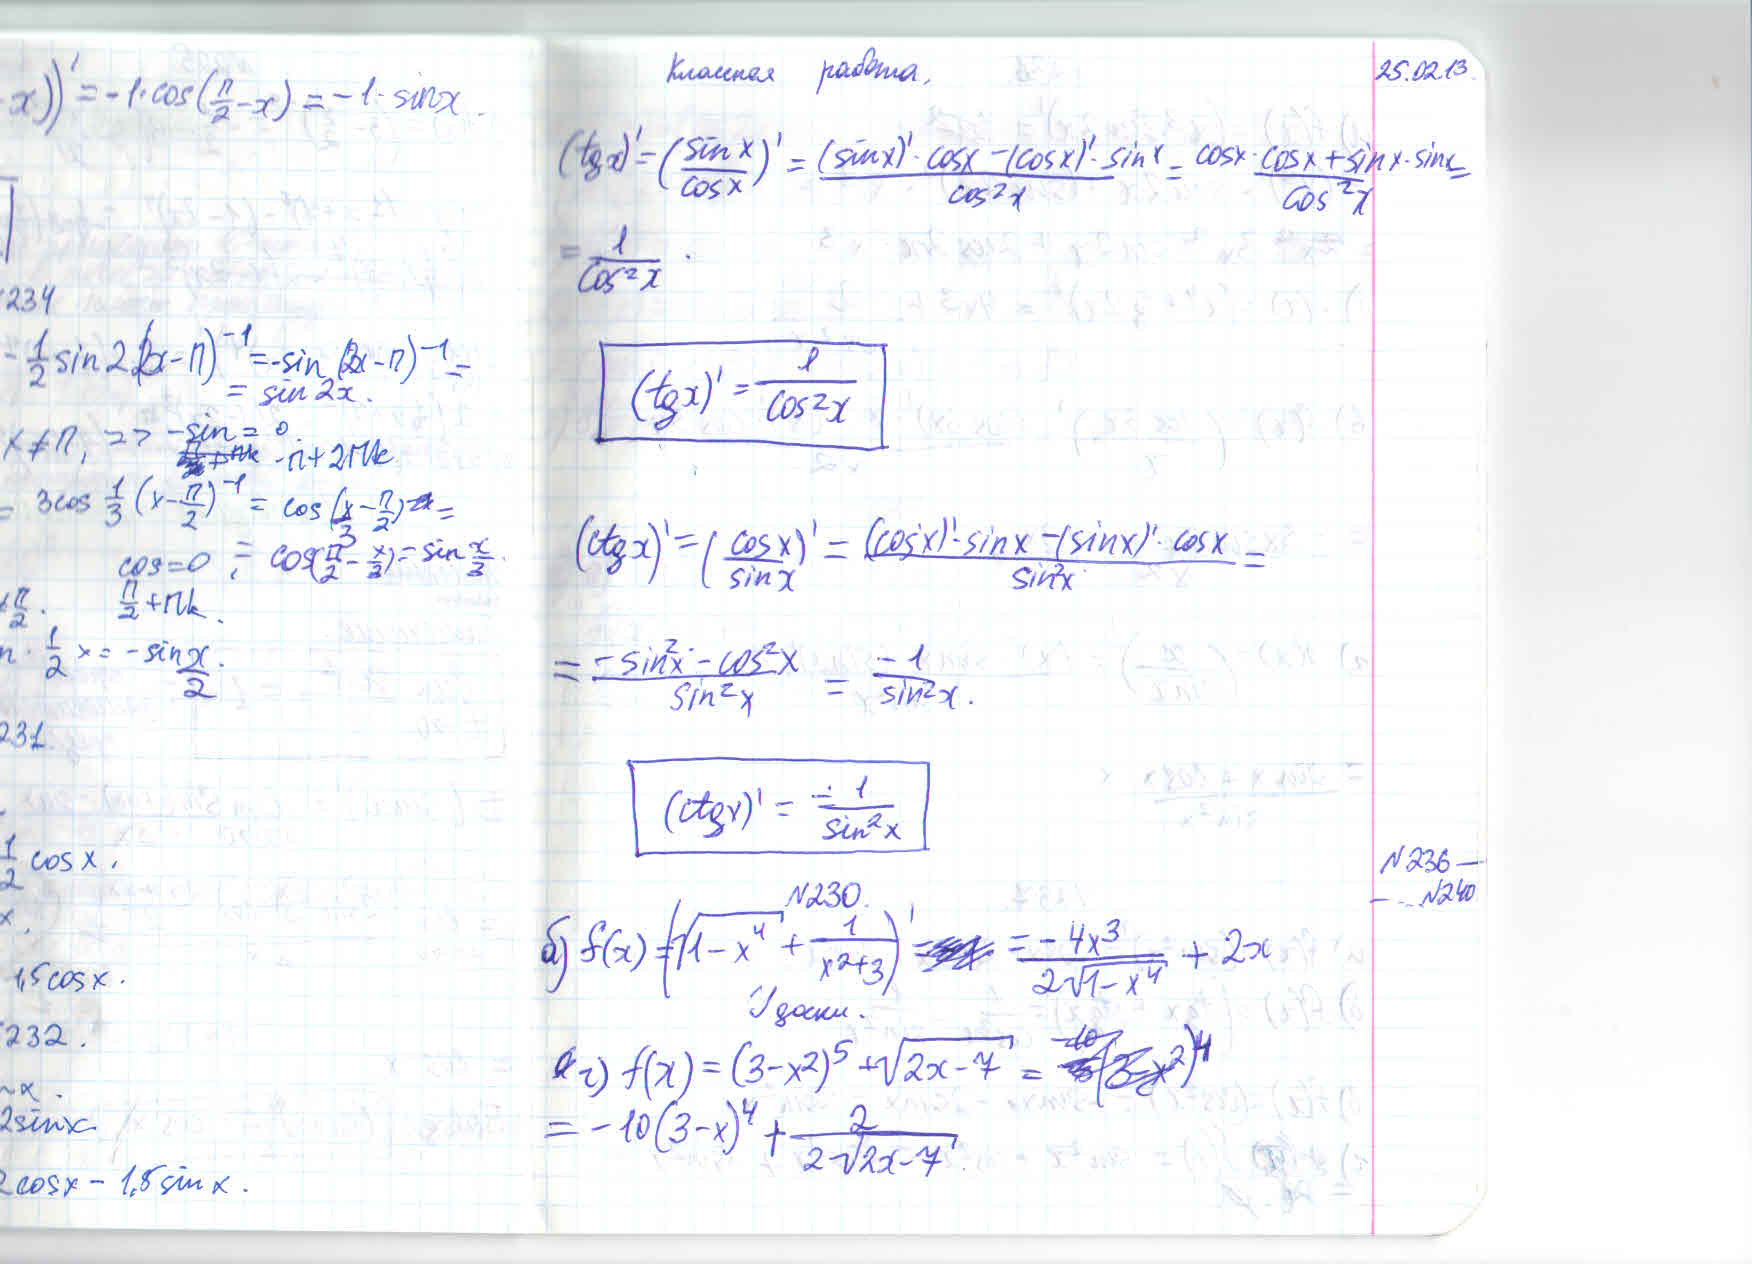 x))' = -1·cos(π/2 - x) = -1·sinx.
234
= 1/2 sin 2(2x-π)^-1 = -sin (2x-π)^-1 =
= sin 2x.
x ≠ π, => -sin = 0.
-π + 2πk
= 3cos 1/3 (x - π/2)^-1 = cos (x/3 - π/2) =
cos=0, = cos(π/2 - x/3) = sin x/3.
π/2. π/2 + πk.
· 1/2 x = -sin x/2.
231
1/2 cos x.
x.
1,5 cos x.
232.
-x.
2sinx
2cosx - 1,5 sin x.
Классная работа. 25.02.13.
(tgx)' = (sin x/cos x)' = ((sinx)'·cosx - (cosx)'·sinx)/cos²x = (cosx·cosx + sinx·sinx)/cos²x =
= 1/cos²x.
(tgx)' = 1/cos²x
(ctgx)' = (cosx/sinx)' = ((cosx)'·sinx - (sinx)'·cosx)/sin²x =
= (-sin²x - cos²x)/sin²x = -1/sin²x.
(ctgx)' = -1/sin²x
№236 —
- №240
№230.
б) f(x) = (√(1-x⁴) + 1/(x²+3))' = = -4x³/(2√(1-x⁴)) + 2x
У доски.
г) f(x) = (3-x²)⁵ + √(2x-7) = -10(3-x²)⁴
= -10(3-x)⁴ + 2/(2√(2x-7))